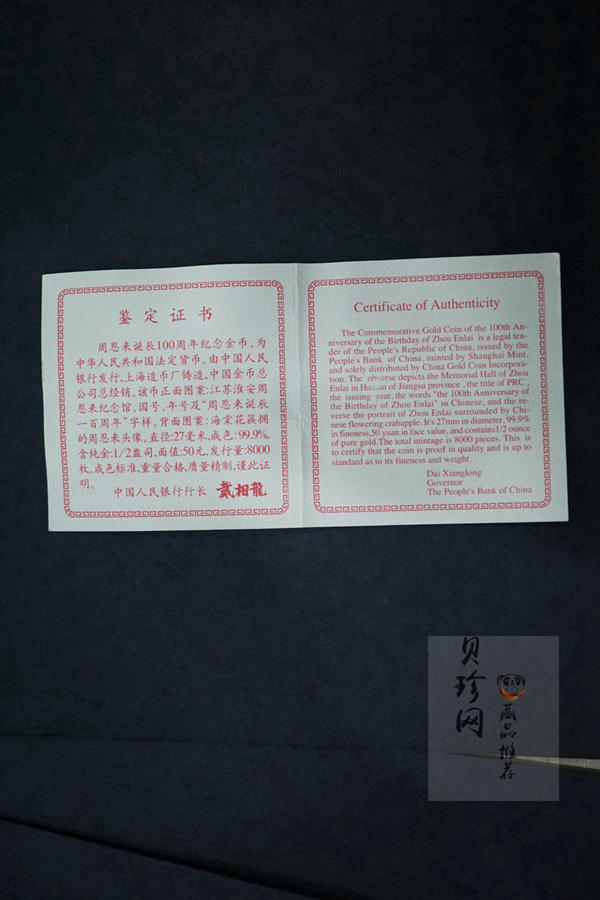 鉴定证书
周恩来诞辰100周年纪念金币，为
中华人民共和国法定货币。由中国人民
银行发行，上海造币厂铸造，中国金币总
公司总经销。该币正面图案：江苏淮安周
恩来纪念馆、国号、年号及“周恩来诞辰
一百周年”字样，背面图案：海棠花簇拥
的周恩来头像。直径：27毫米，成色：99.9%，
含纯金：1/2盎司，面值：50元，发行量：8000
枚。成色标准，重量合格，质量精制，谨此证
明。
中国人民银行行长 戴相龍
Certificate of Authenticity
The Commemorative Gold Coin of the 100th An-
niversary of the Birthday of Zhou Enlai is a legal ten-
der of the People's Republic of China, issued by the
People's Bank of China, minted by Shanghai Mint,
and solely distributed by China Gold Coin Incorpora-
tion. The obverse depicts the Memorial Hall of Zhou
Enlai in of Jiangsu province , the title of PRC ,
the issuing year, the words "the 100th Anniversary of
the Birthday of Zhou Enlai" in Chinese, and the re-
verse the portrait of Zhou Enlai surrounded by Chi-
nese flowering crabapple. It's 27mm in diameter, 99.9%
in fineness, 50 yuan in face value, and contains 1/2 ounce
of pure gold.The total mintage is 8000 pieces. This is
to certify that the coin is proof in quality and is up to
standard as to its fineness and weight.
Dai Xianglong
Governor
The People's Bank of China
贝珍网
藏品推荐